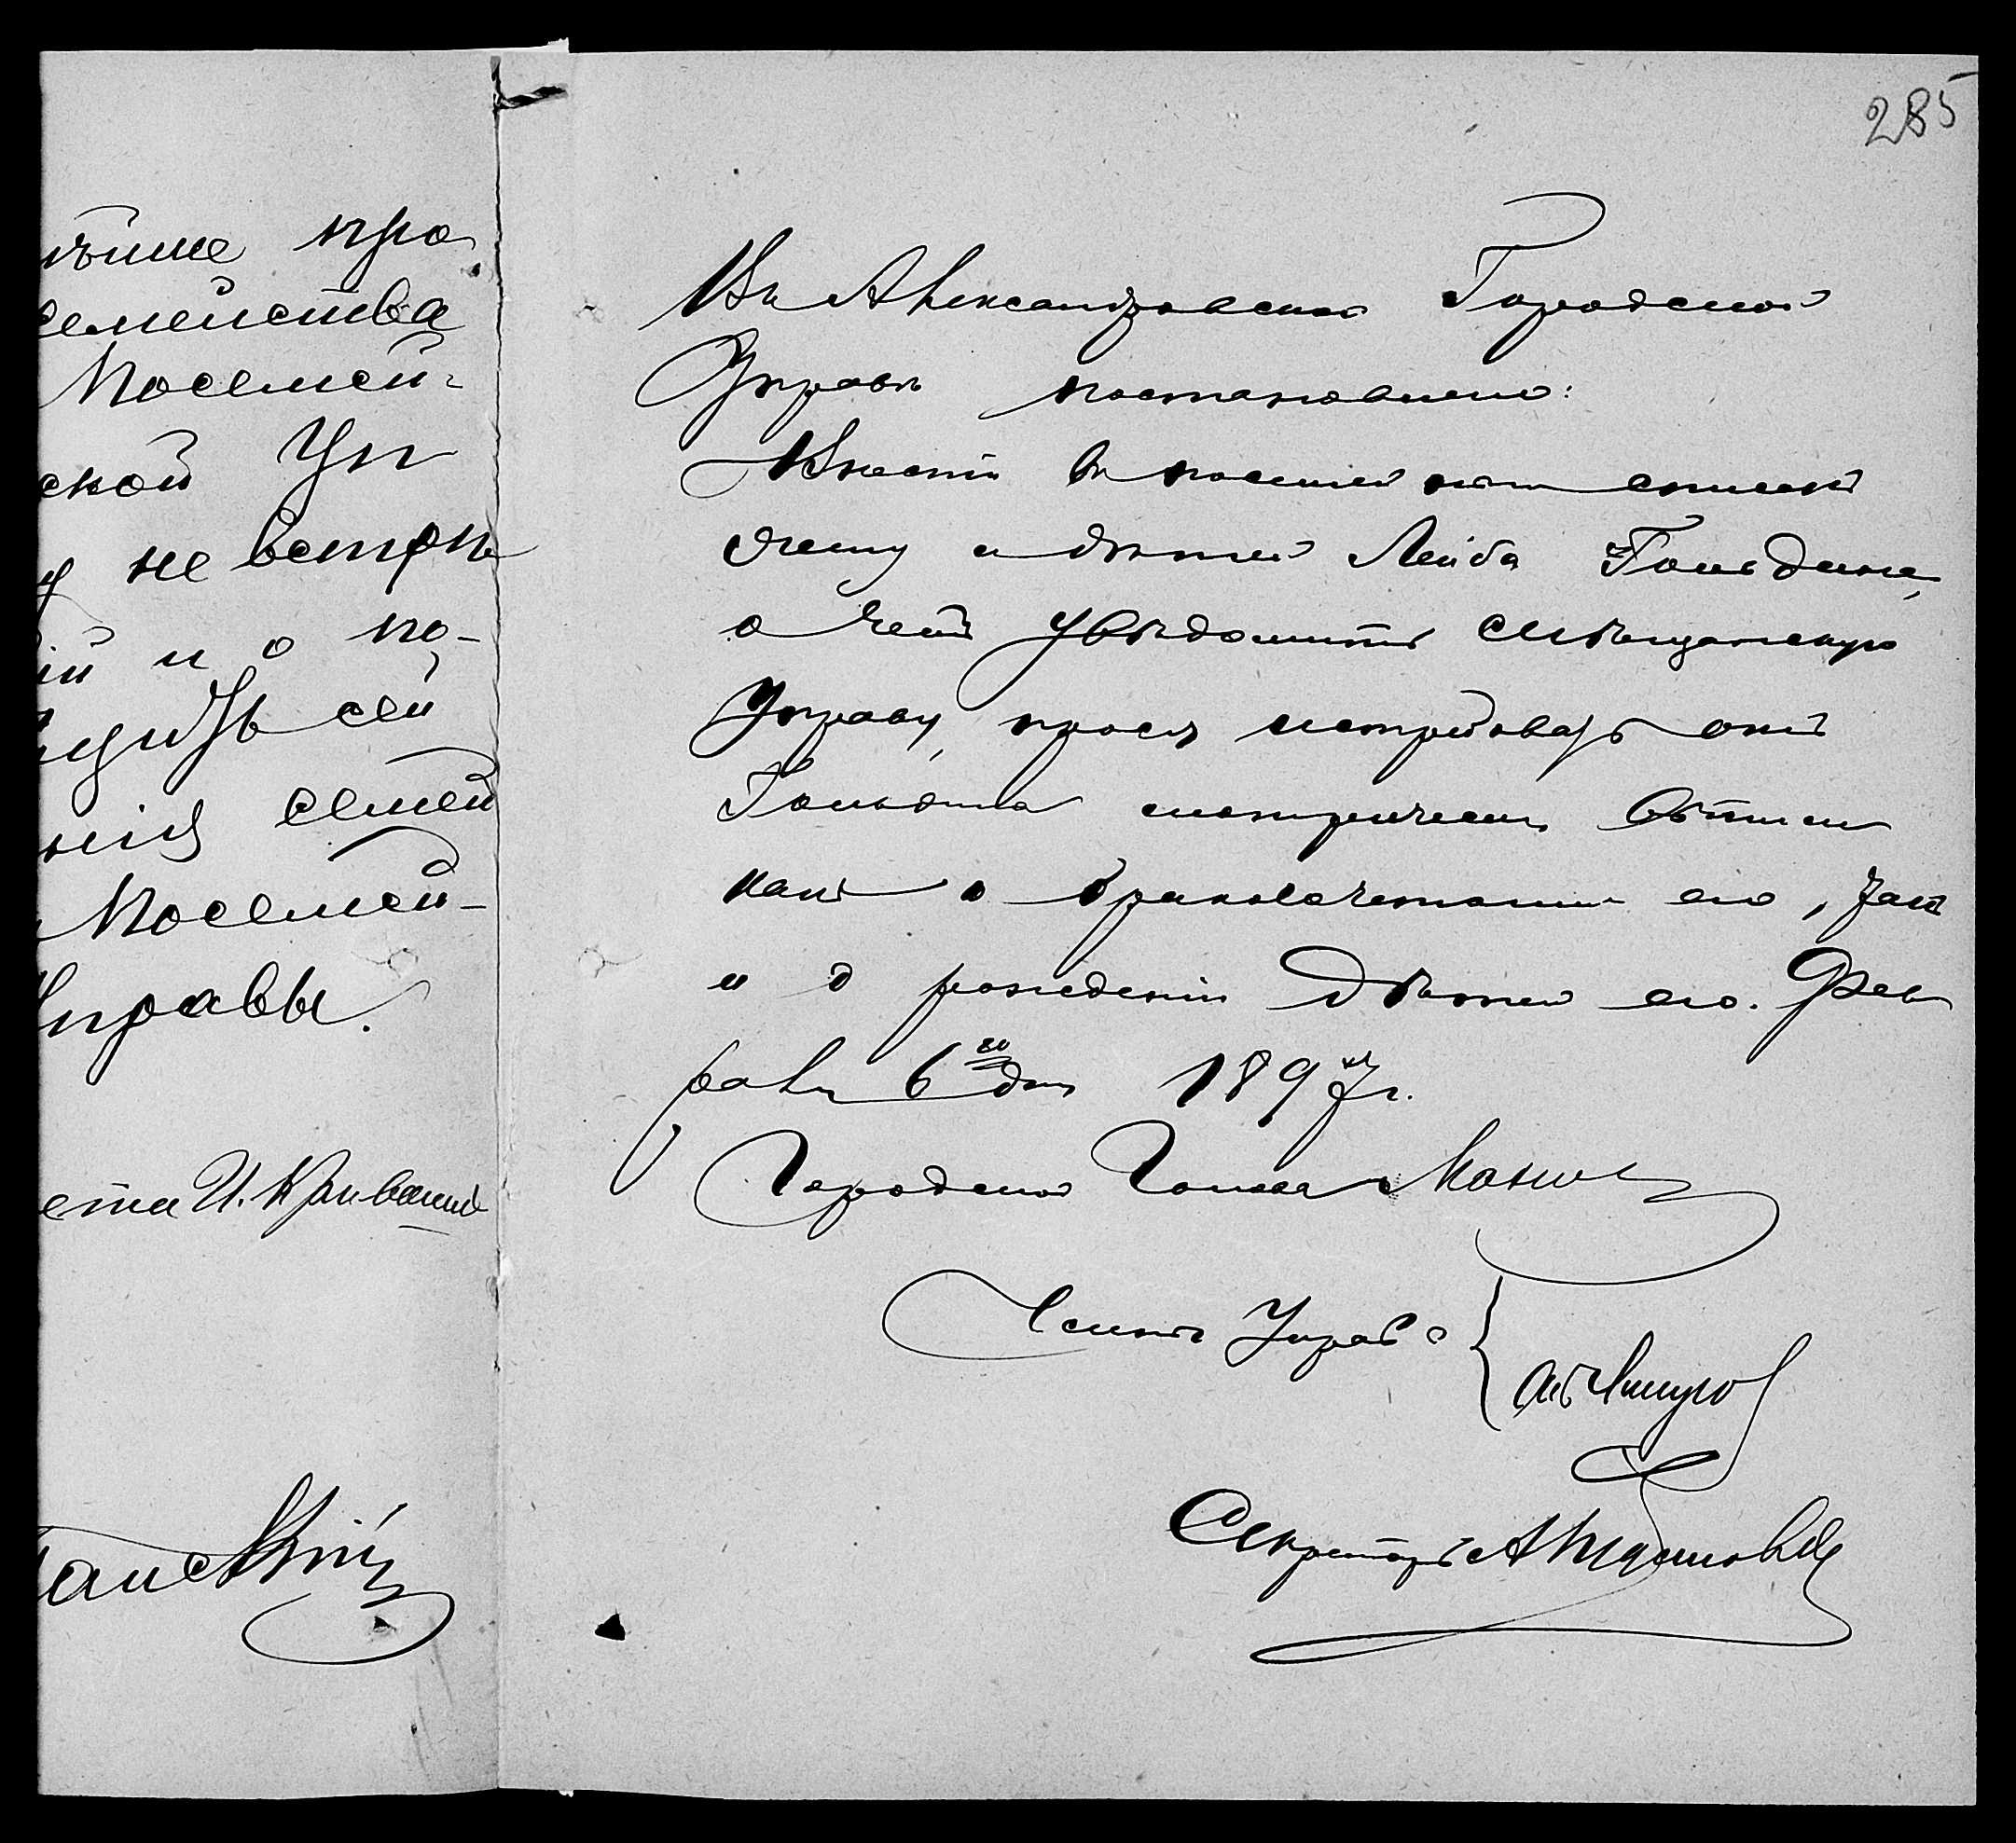 285
про
семейства
Посемей-
ской Уп
не встрѣ
й и о по-
сей
нія семей
Посемей-
Управы.
И.
Въ Александровской Городской
Управѣ постановлено:
Внести въ посемейный списокъ
жену и дѣтей Лейба Гольдина,
о чемъ увѣдомить мѣщанскую
Управу, прося истребовать отъ
Гольдина метрическія выписи
какъ о бракосочетаніи его, такъ
и о рожденіи дѣтей его. Фев
раля 6го дня 1897 г.
Городской Голова
Члены Управы
Секретарь